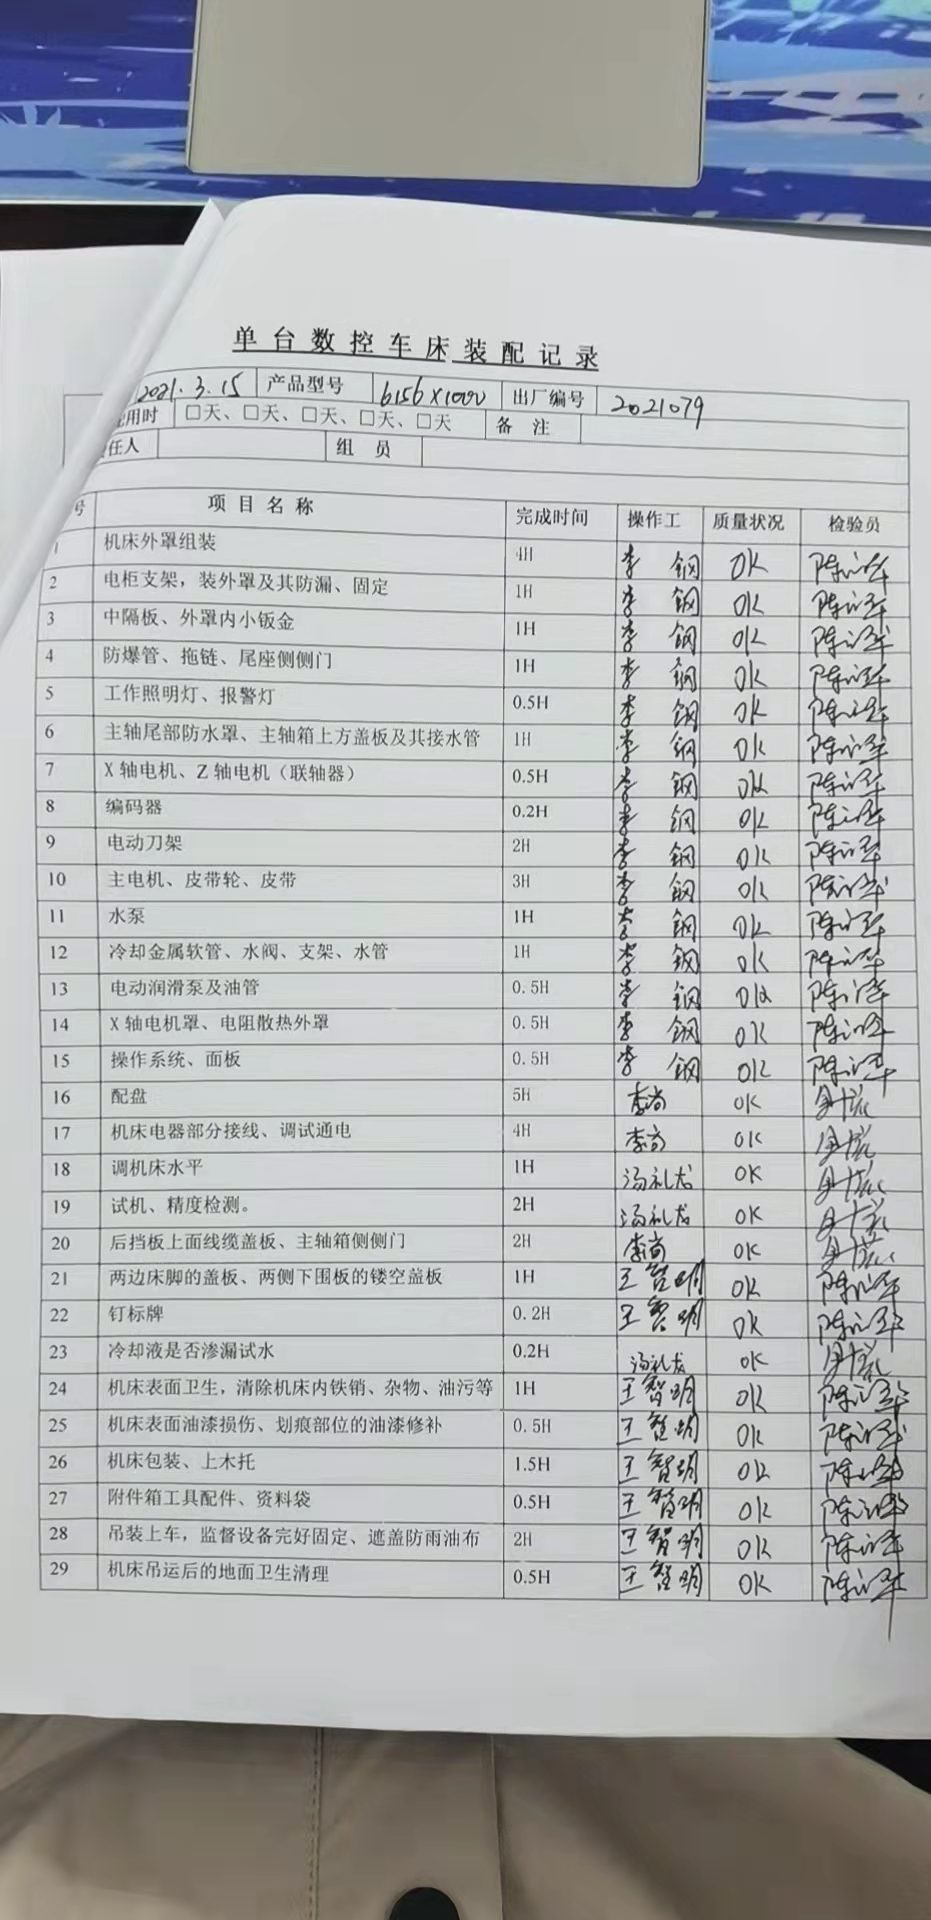 单台数控车床装配记录
2021.3.15 产品型号 6156×1000 出厂编号 2021079
用时 □天、□天、□天、□天、□天 备 注
任人 组 员
号 项目名称 完成时间 操作工 质量状况 检验员
1 机床外罩组装 4H 李 钢 OK
2 电柜支架，装外罩及其防漏、固定 1H 李 钢 OK
3 中隔板、外罩内小钣金 1H 李 钢 OK
4 防爆管、拖链、尾座侧侧门 1H 李 钢 OK
5 工作照明灯、报警灯 0.5H 李 钢 OK
6 主轴尾部防水罩、主轴箱上方盖板及其接水管 1H 李 钢 OK
7 X轴电机、Z轴电机（联轴器） 0.5H 李 钢 OK
8 编码器 0.2H 李 钢 OK
9 电动刀架 2H 李 钢 OK
10 主电机、皮带轮、皮带 3H 李 钢 OK
11 水泵 1H 李 钢 OK
12 冷却金属软管、水阀、支架、水管 1H 李 钢 OK
13 电动润滑泵及油管 0.5H 李 钢 OK
14 X轴电机罩、电阻散热外罩 0.5H 李 钢 OK
15 操作系统、面板 0.5H 李 钢 OK
16 配盘 5H 李尚 OK
17 机床电器部分接线、调试通电 4H 李尚 OK
18 调机床水平 1H 汤礼龙 OK
19 试机、精度检测。 2H 汤礼龙 OK
20 后挡板上面线缆盖板、主轴箱侧侧门 2H 李尚 OK
21 两边床脚的盖板、两侧下围板的镂空盖板 1H 王智明 OK
22 钉标牌 0.2H 王智明 OK
23 冷却液是否渗漏试水 0.2H 汤礼龙 OK
24 机床表面卫生，清除机床内铁销、杂物、油污等 1H 王智明 OK
25 机床表面油漆损伤、划痕部位的油漆修补 0.5H 王智明 OK
26 机床包装、上木托 1.5H 王智明 OK
27 附件箱工具配件、资料袋 0.5H 王智明 OK
28 吊装上车，监督设备完好固定、遮盖防雨油布 2H 王智明 OK
29 机床吊运后的地面卫生清理 0.5H 王智明 OK